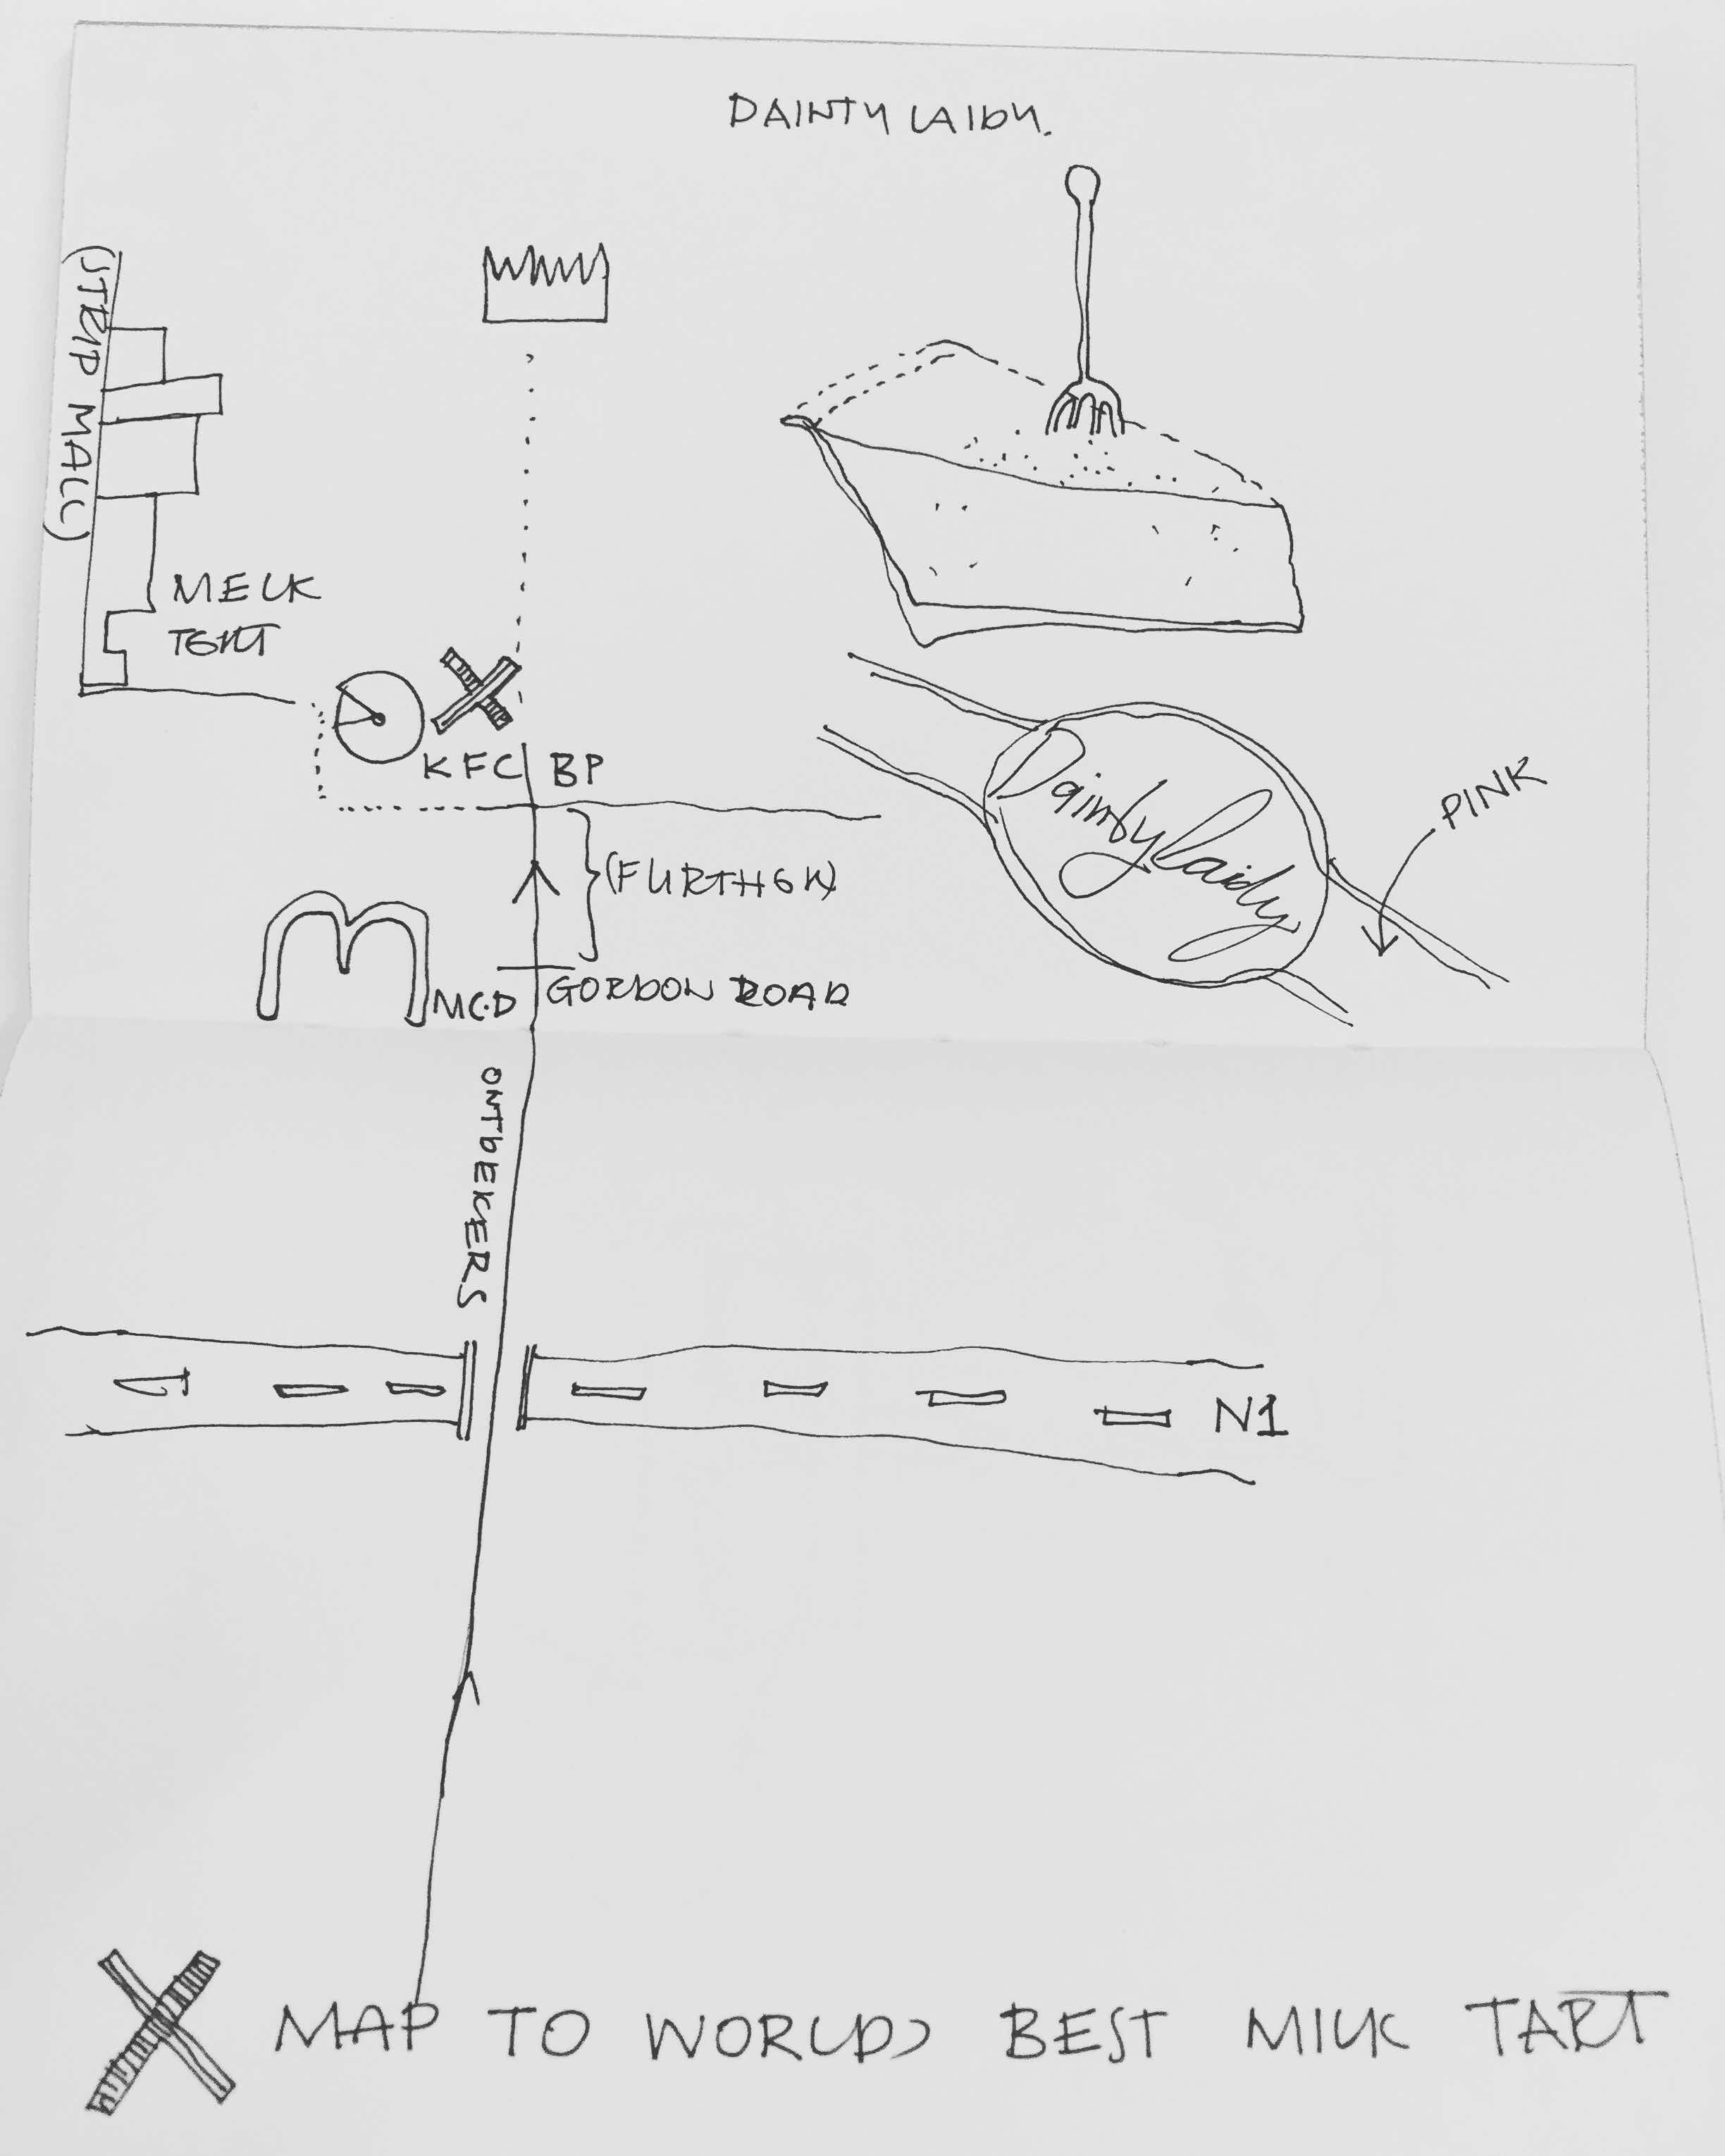 DAINTY LAIDY.
(STRIP MALL)
MELK
TERT
KFC
BP
(FURTHER)
MCD
GORDON ROAD
Dainty Laidy
PINK
ONTDEKERS
N1
MAP TO WORLDS BEST MILK TART